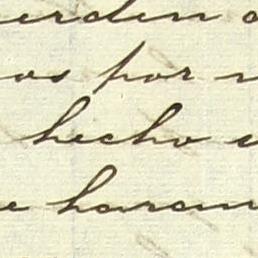 erden
os por
hecho
e haram